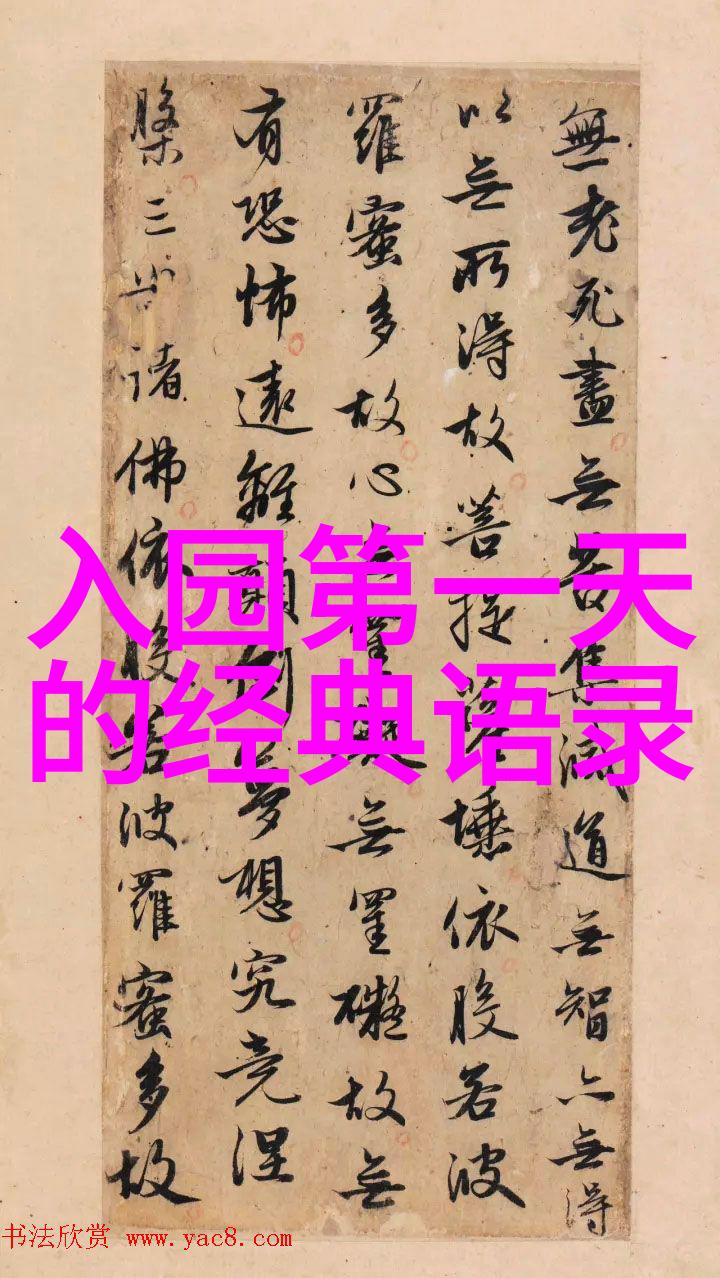 無老死盡无苦集滅道无智亦無得
以无所得故菩提薩埵依般若波
羅蜜多故心无罣礙无罣礙故无
有恐怖遠離顛倒夢想究竟涅
槃三世諸佛依般若波羅蜜多故
入园第一天
的经典语录
书法欣赏 www.yac8.com